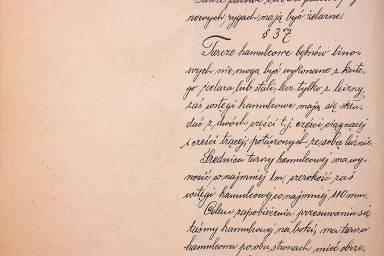 nowych rygach mają być żelazne.
§ 37
Tarcze hamulcowe bębnów lino-
wych nie mogą być wykonane z kute-
go żelaza lub stali, lecz tylko z leizny,
zaś wstęgi hamulcowe mają się skła-
dać z dwóch części t.j. części ciągnącej
i części trącej, połączonych ze sobą luźnie.
Średnica tarczy hamulcowej ma wy-
nosić conajmniej 1m, szerokość zaś
wstęgi hamulcowej conajmniej 110 mm.
Celem zapobieżenia przesuwaniu się
taśmy hamulcowej na boki, ma tarcza
hamulcowa po obu stronach mieć obrze-